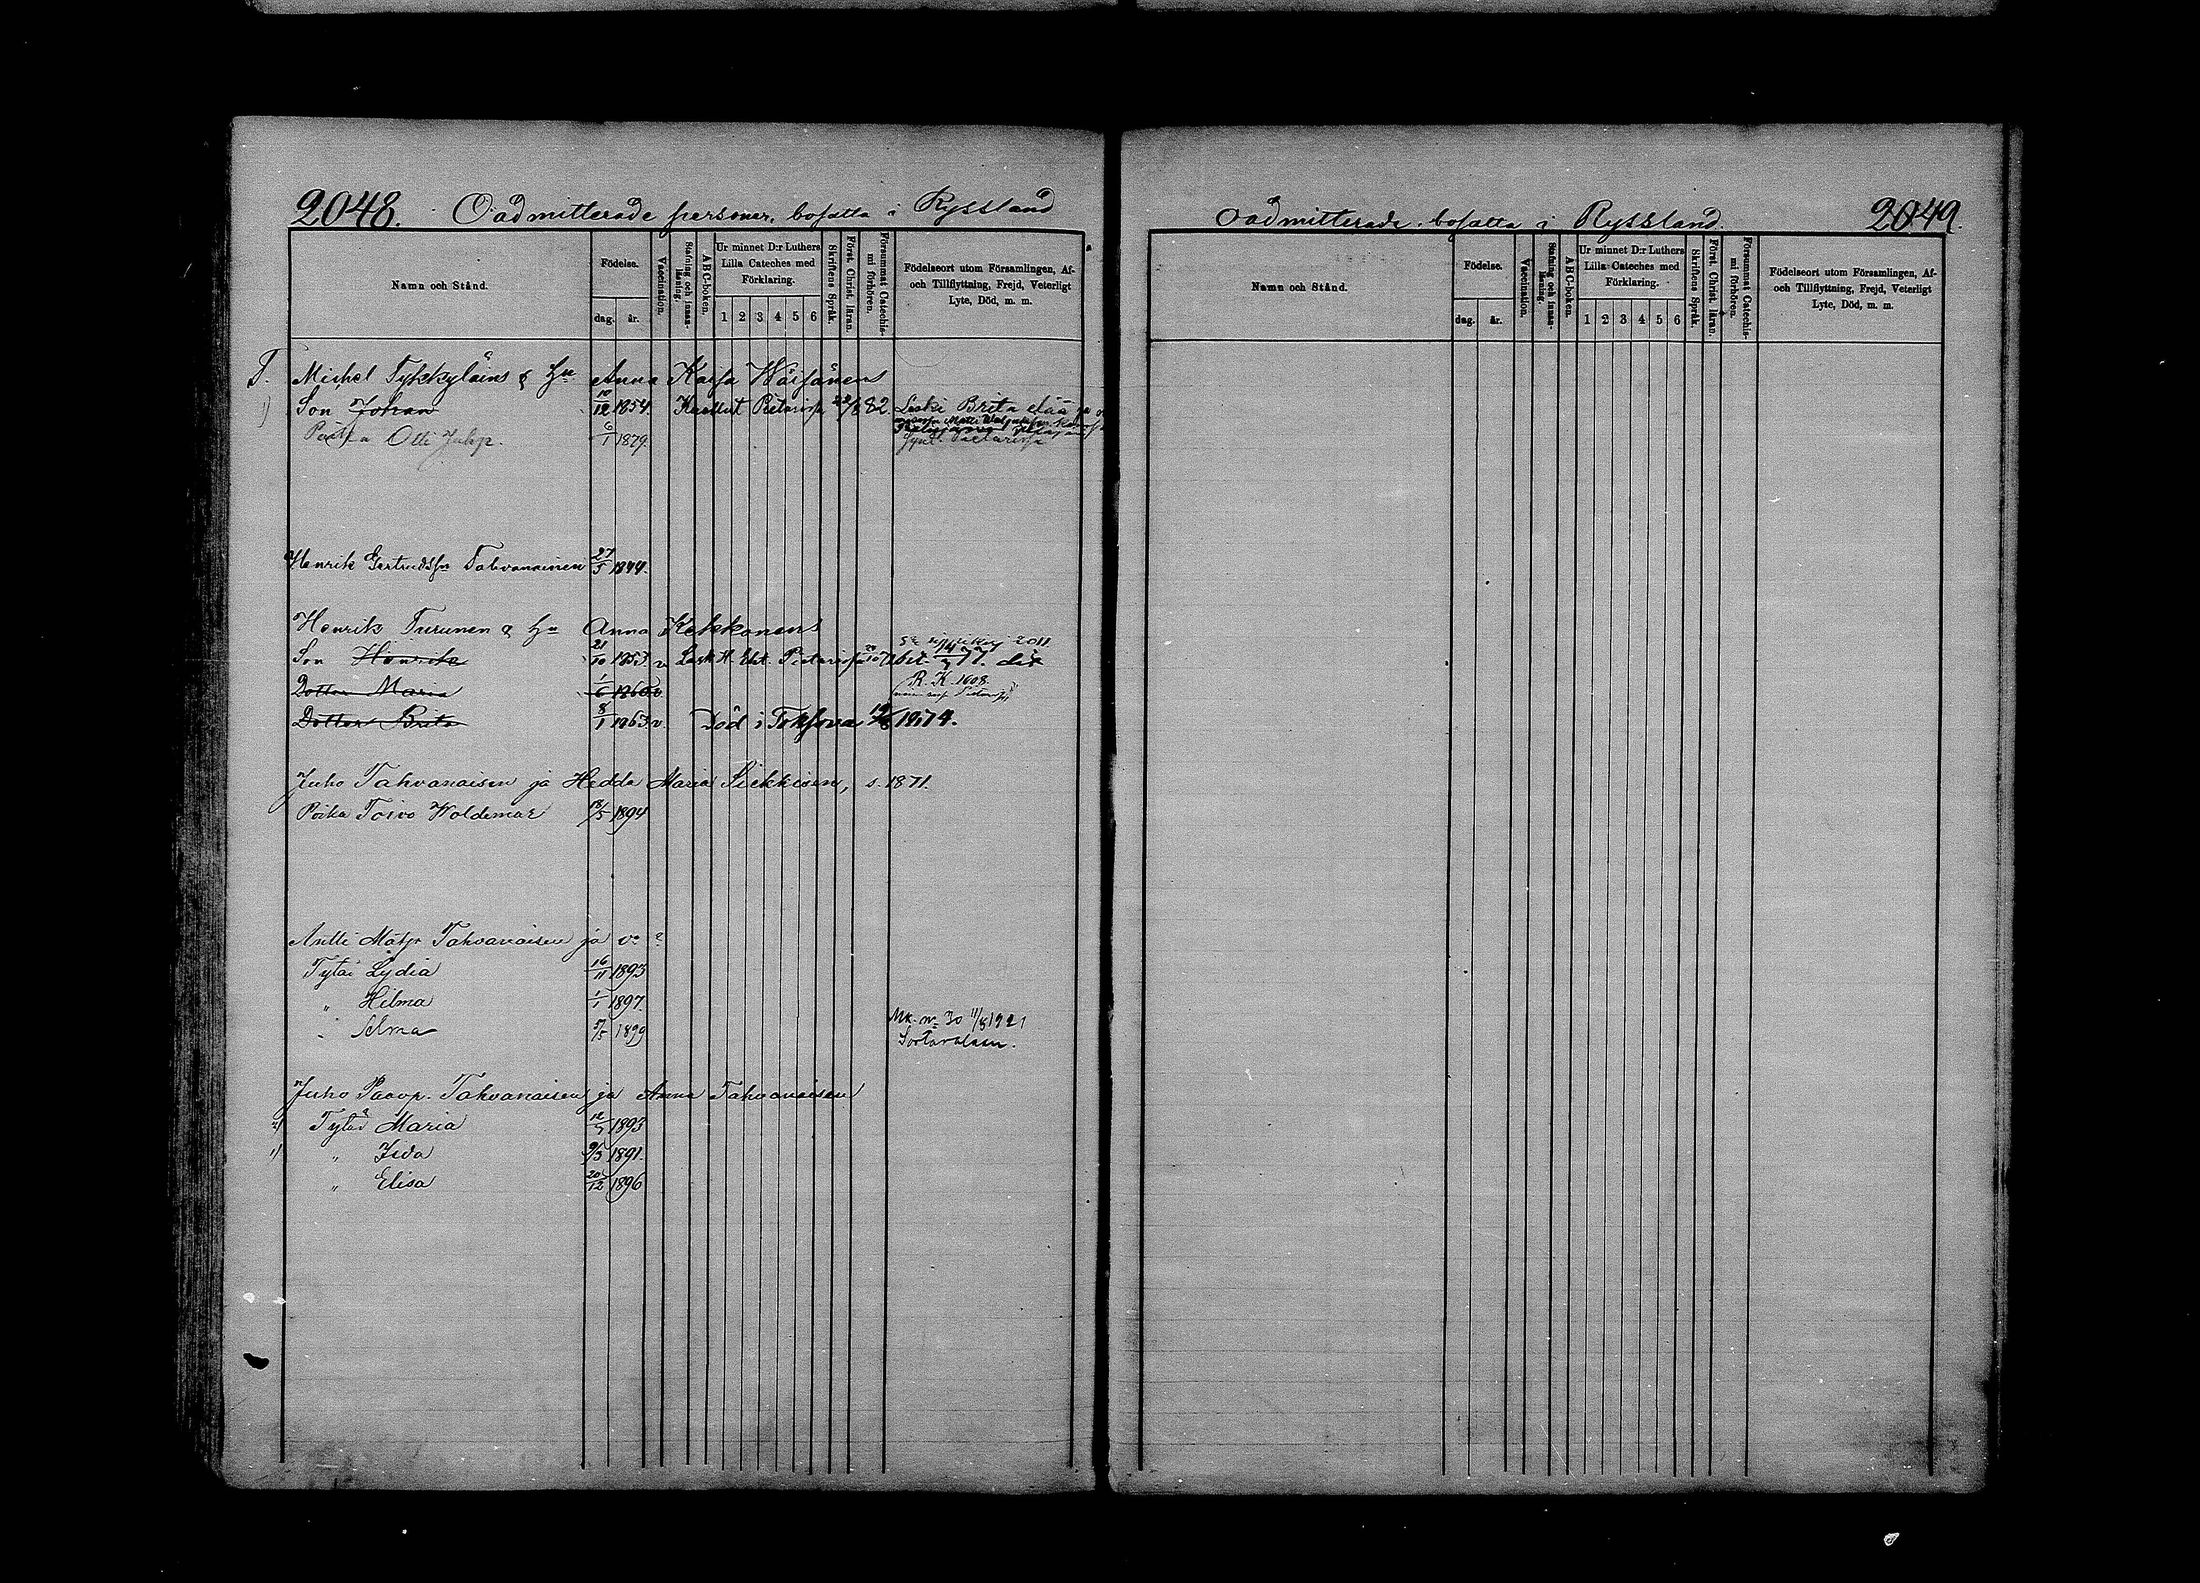 2048. Oadmitterade personer, bosatta i Ryssland
Namn och Stånd.
Födelse.
dag. år.
Vaccination.
Stafning och innanläsning.
ABC-boken.
Ur minnet D:r Luthers Lilla Cateches med Förklaring.
1 2 3 4 5 6
Skriftens Språk.
Först. Christ. läran.
Försummat Catechismi förhören.
Födelseort utom Församlingen, Af- och Tillflyttning, Frejd, Veterligt Lyte, Död, m. m.
T. Michel Tykkyläins & Hu Anna Kaisa Wäisänens
1) Son Johan 10/12 1854. Pietarissa 22/2 82. Leski Brita elää ja
Poika Otti Juhp. 6/1 1879. Pietarissa
Henrik Gertrudsson Tahvanainen 27/5 1844.
Henrik Turunen & Hu Anna Kekkonens
Son Henrik 21/10 1853. v Pietarissa
R. K. 1608.
Dotter Maria 1/6 1860. v.
Dotter Brita 8/1 1863. v. Död i Toksova 1874.
Juho Tahvanaisen ja Hedda Maria Siekkisen, s. 1871.
Poika Toivo Woldemar 18/5 1894
Antti Matp. Tahvanaisen ja v:o ?
Tytär Lydia 16/11 1893
" Hilma 1/1 1897.
" Selma 5/5 1899
Mk. No 30 11/8 1921
Sortavalaan.
Juho Paavp. Tahvanaisen ja Anna Tahvanaisen
2) Tytär Maria 1893
1) " Iida 9/3 1891.
" Elisa 20/12 1896
Oadmitterade, bosatta i Ryssland. 2049.
Namn och Stånd.
Födelse.
dag. år.
Vaccination.
Stafning och innanläsning.
ABC-boken.
Ur minnet D:r Luthers Lilla Cateches med Förklaring.
1 2 3 4 5 6
Skriftens Språk.
Först. Christ. läran.
Försummat Catechismi förhören.
Födelseort utom Församlingen, Af- och Tillflyttning, Frejd, Veterligt Lyte, Död, m. m.